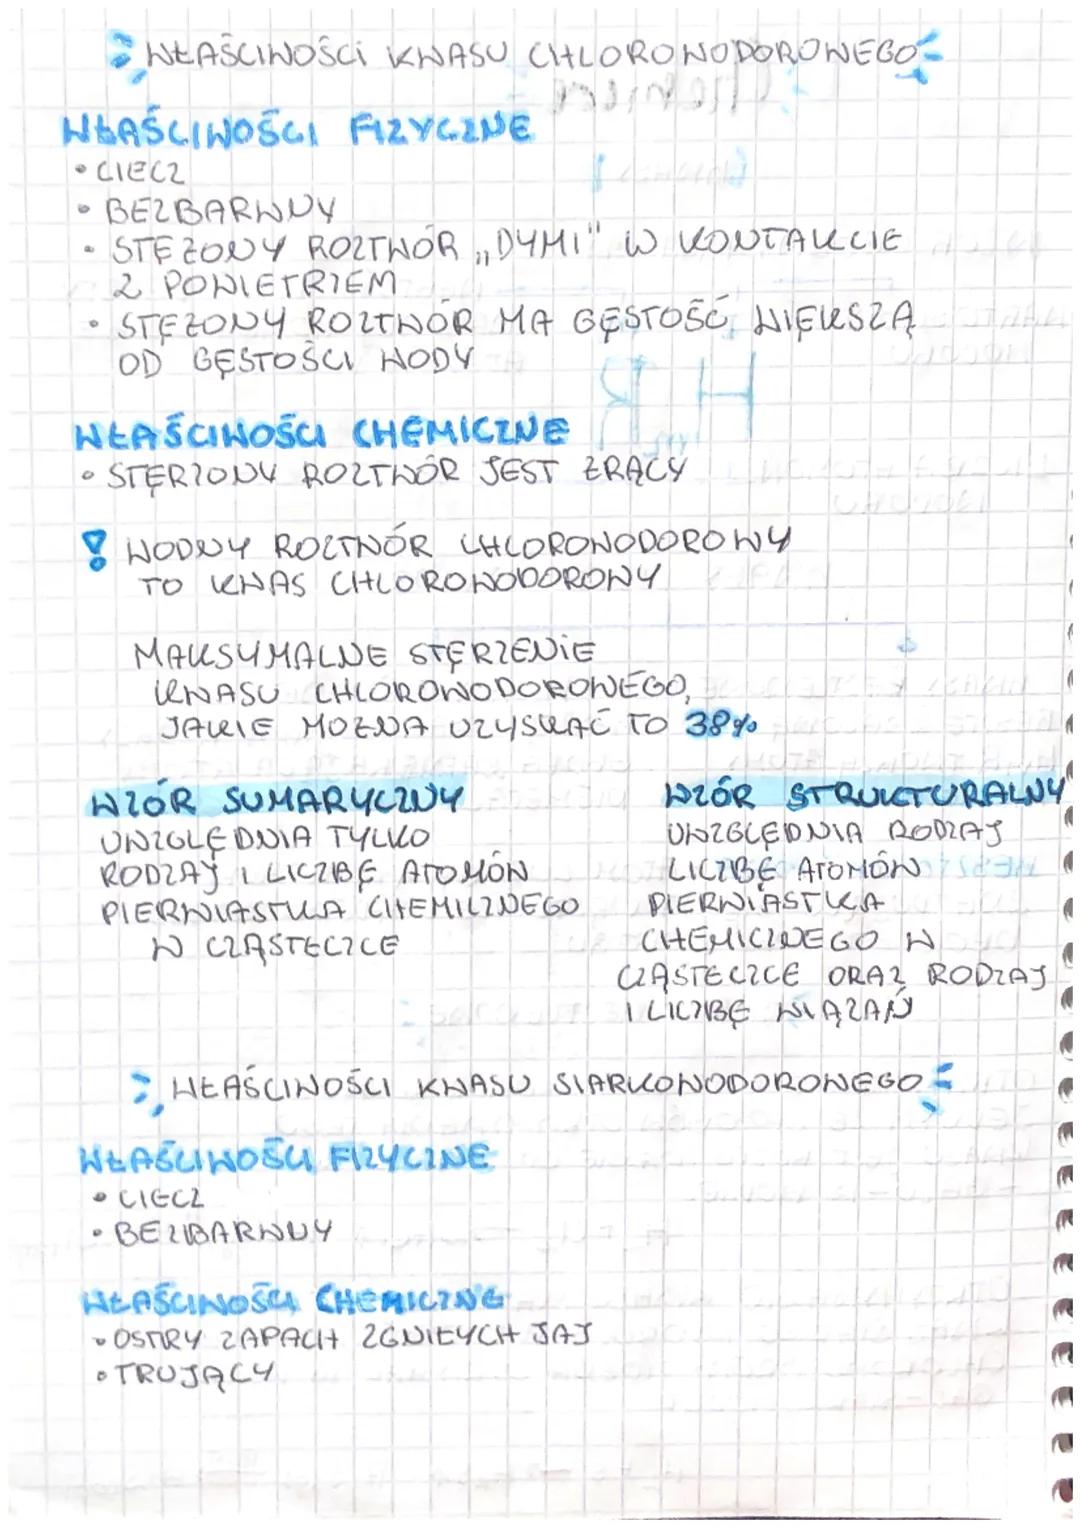 WŁAŚCIWOŚCI KWASU CHLOROWODOROWEGO
WŁAŚCIWOŚCI FIZYCZNE
• CIECZ
• BEZBARWNY
• STĘŻONY ROZTWÓR „DYMI" W KONTAKCIE
Z POWIETRZEM
• STĘŻONY ROZTWÓR MA GĘSTOŚĆ WIĘKSZĄ
OD GĘSTOŚCI WODY
WŁAŚCIWOŚCI CHEMICZNE
• STĘRZONY ROZTWÓR JEST ŻRĄCY
! WODNY ROZTWÓR CHLOROWODOROWY
TO KWAS CHLOROWODOROWY
MAKSYMALNE STĘRZENIE
KWASU CHLOROWODOROWEGO,
JAKIE MOŻNA UZYSKAĆ TO 38%
WZÓR SUMARYCZNY
UWZGLĘDNIA TYLKO
RODZAJ I LICZBĘ ATOMÓW
PIERWIASTKA CHEMICZNEGO
W CZĄSTECZCE
WZÓR STRUKTURALNY
UWZGLĘDNIA RODZAJ
LICZBĘ ATOMÓW
PIERWIASTKA
CHEMICZNEGO W
CZĄSTECZCE ORAZ RODZAJ
I LICZBĘ WIĄZAŃ
WŁAŚCIWOŚCI KWASU SIARKOWODOROWEGO
WŁAŚCIWOŚCI FIZYCZNE
• CIECZ
• BEZBARWNY
WŁAŚCIWOŚCI CHEMICZNE
• OSTRY ZAPACH ZGNIŁYCH JAJ
• TRUJĄCY